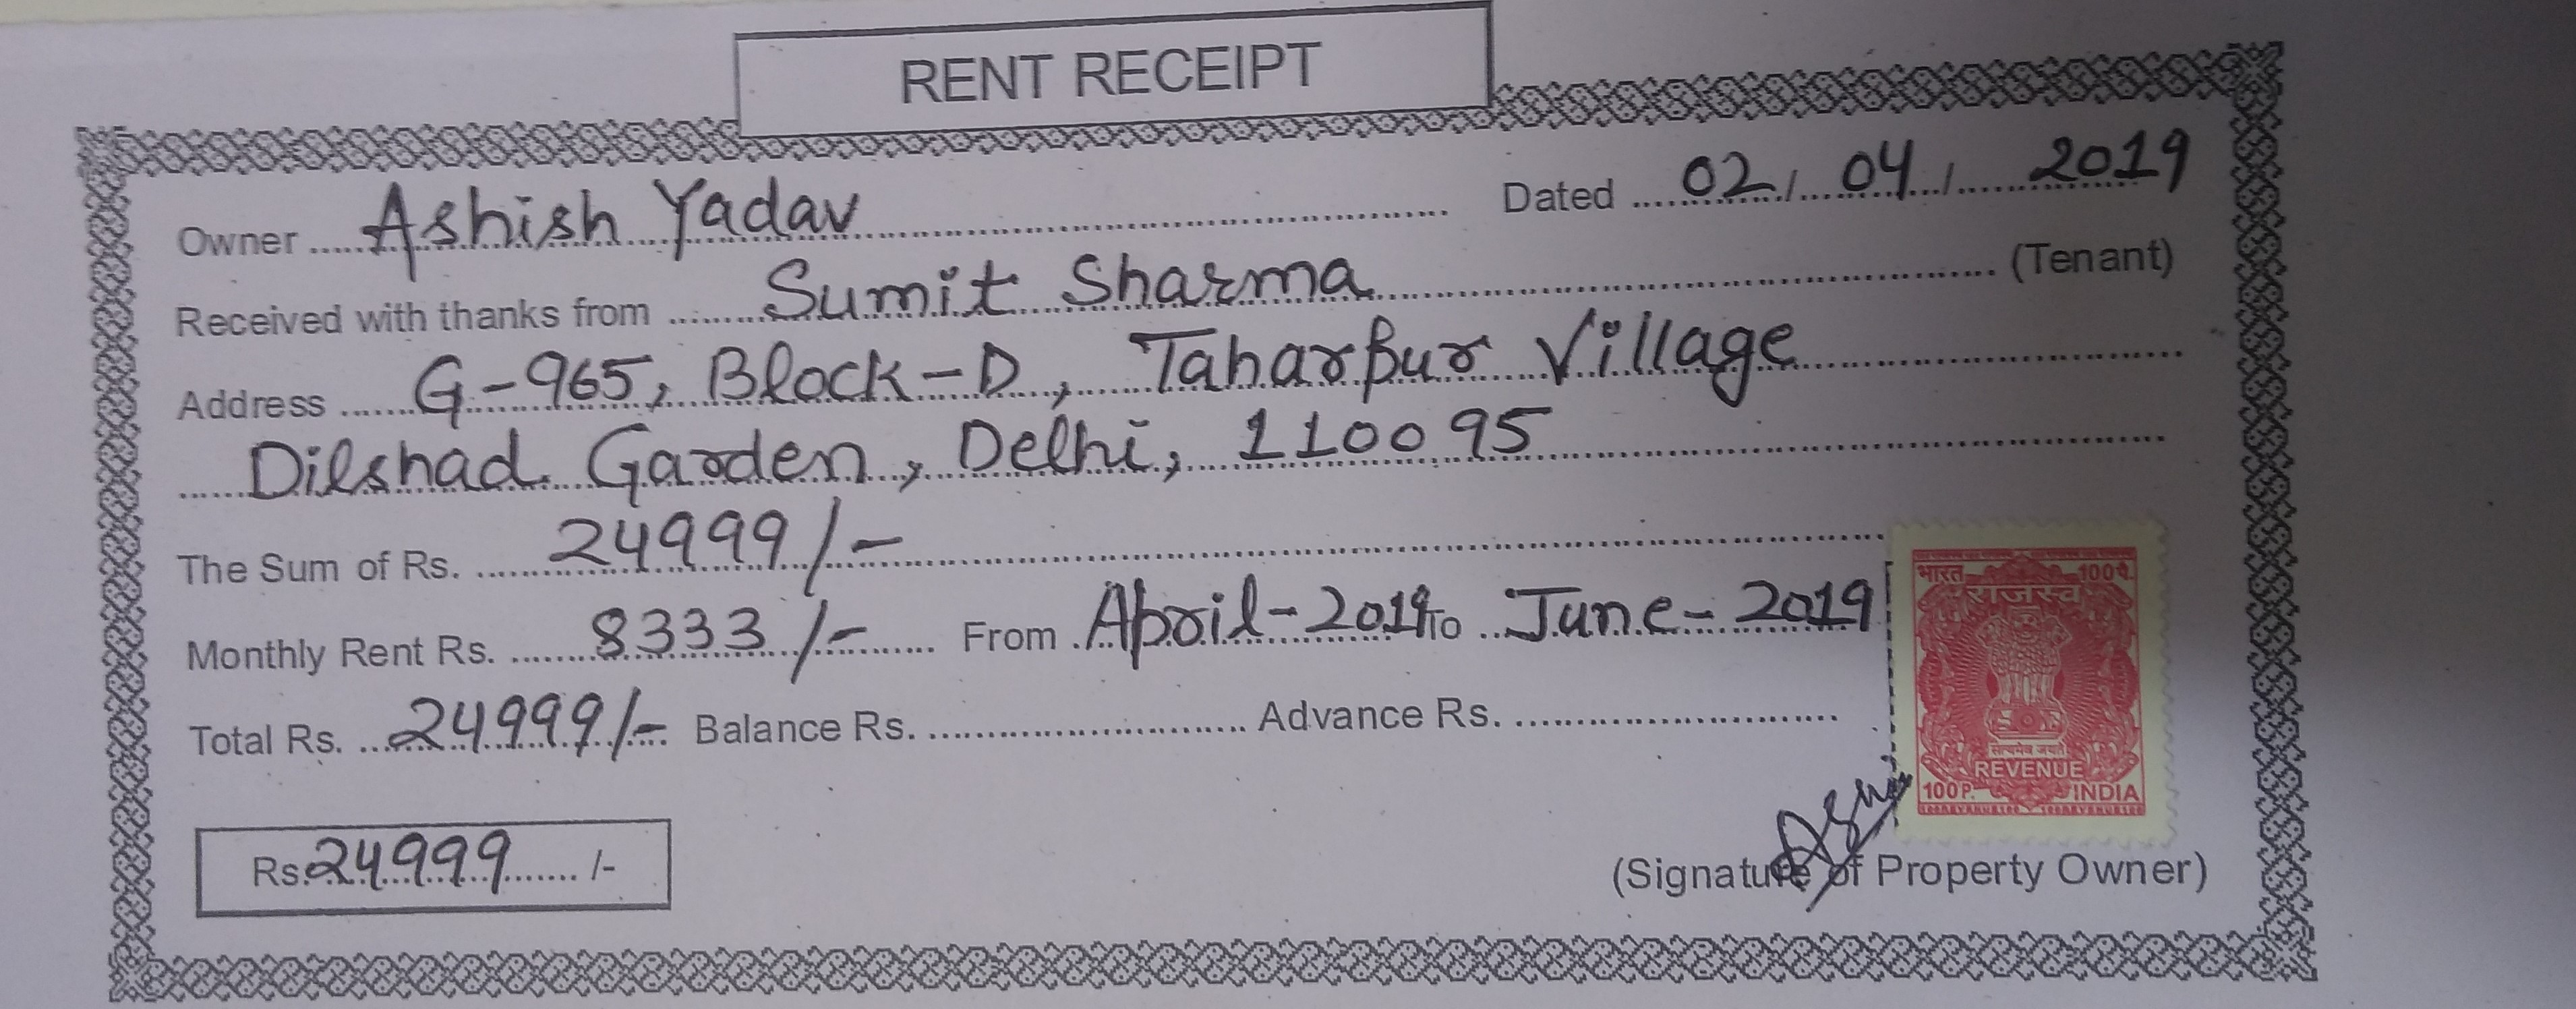 RENT RECEIPT
Owner ..... Ashish Yadav ..... Dated ..... 02 / 04 / 2019
Received with thanks from ..... Sumit Sharma ..... (Tenant)
Address ..... G-965, Block-D, Taharpur Village .....
..... Dilshad Garden, Delhi, 110095 .....
The Sum of Rs. ..... 24999/- .....
Monthly Rent Rs. ..... 8333/- ..... From ..... April-2019 To ..... June-2019
Total Rs. ..... 24999/- Balance Rs. ..... Advance Rs. .....
Rs. 24999 ..... /-
(Signature of Property Owner)
भारत 100 पै.
राजस्व
सत्यमेव जयते
REVENUE
100 P. INDIA